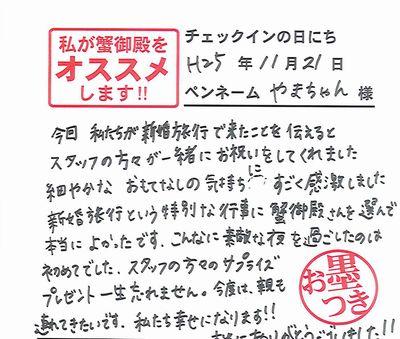 私が蟹御殿を
オススメ
します!!
チェックインの日にち
H25 年 11月 21日
ペンネーム やまちゃん 様
今回 私たちが新婚旅行で来たことを伝えると
スタッフの方々が一緒にお祝いをしてくれました
細やかな おもてなしの気持ちに すごく感激しました
新婚旅行という特別な行事に蟹御殿さんを選んで
本当によかったです。こんなに素敵な夜を過ごしたのは
初めてでした。スタッフの方々のサプライズ
プレゼント一生忘れません。今度は、親も
連れてきたいです。私たち幸せになります!!
本当にありがとうございました!!
お墨つき